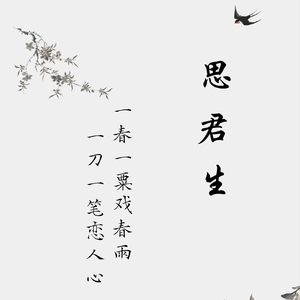 思君生
一春一粟戏春雨
一刀一笔恋人心